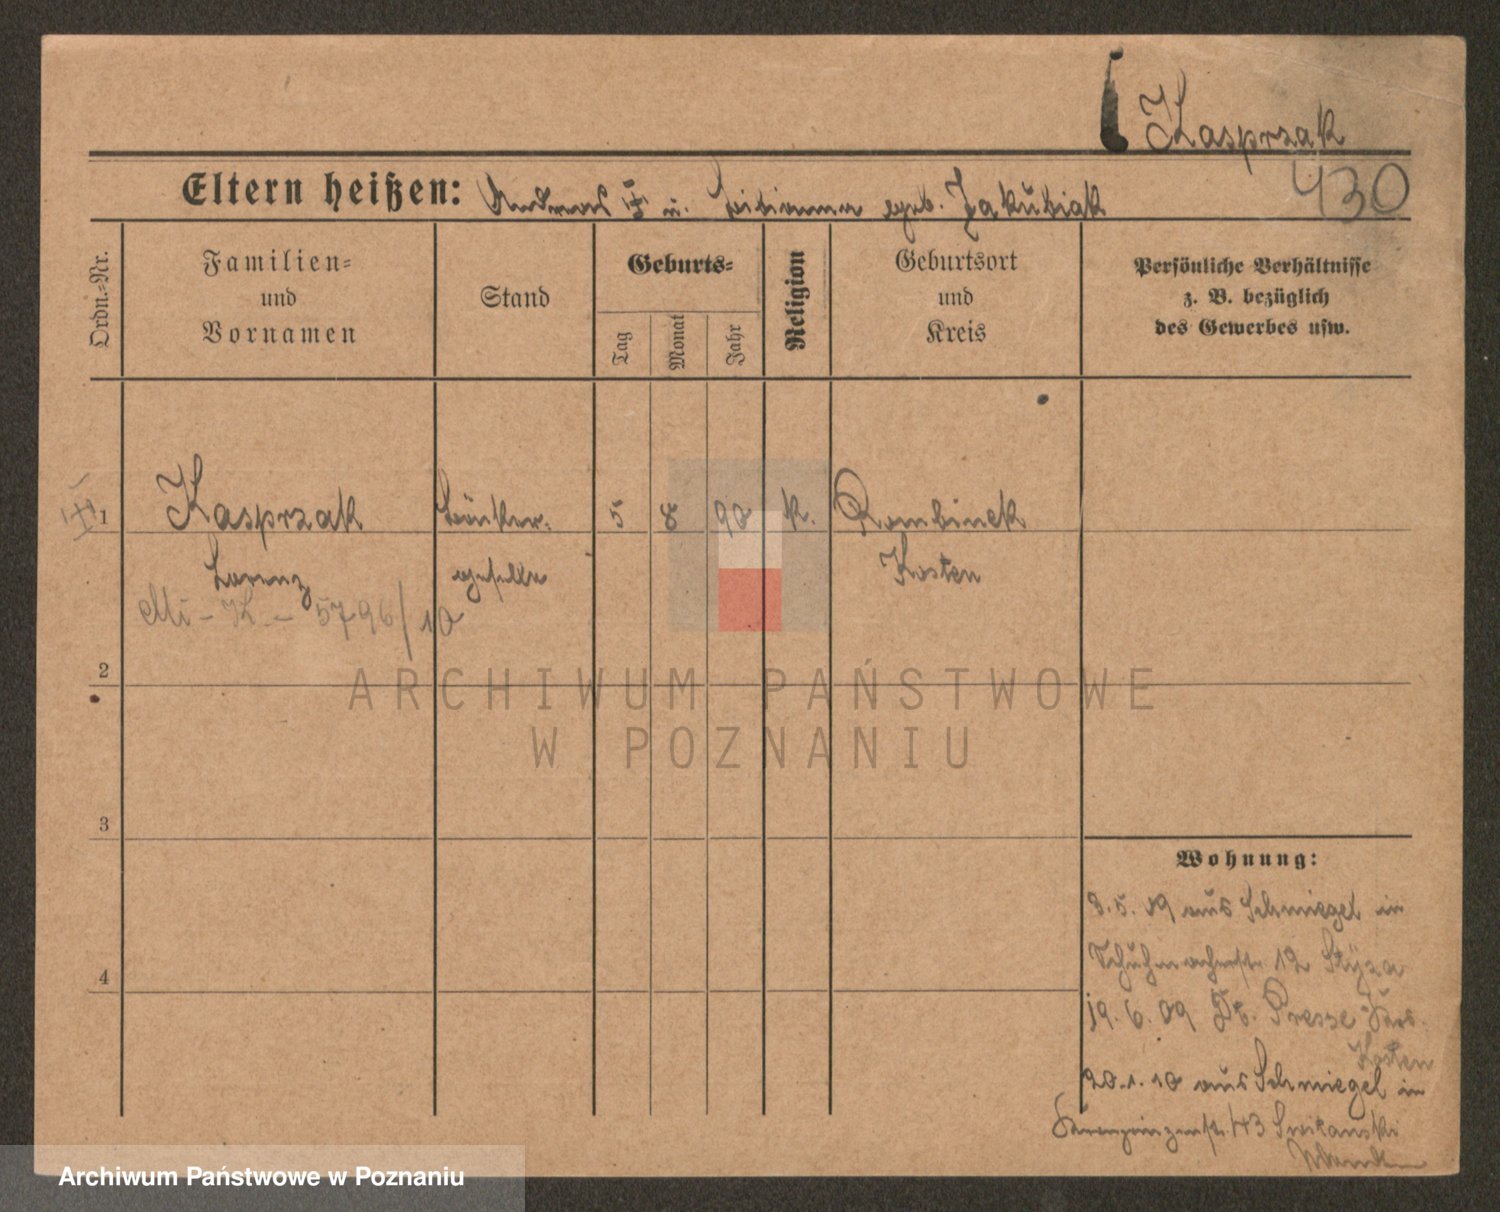 Kasprzak
430
Eltern heißen: Andreas u. geb. Jakubiak
Ordn.-Nr.
Familien-
und
Vornamen
Stand
Geburts-
Tag
Monat
Jahr
Religion
Geburtsort
und
Kreis
Persönliche Verhältnisse
z. B. bezüglich
des Gewerbes usw.
1 Kasprzak 5 8 90 K. Rombinek
Lorenz geselle Kosten
Mi - K. - 5796/10
2
ARCHIWUM PAŃSTWOWE
W POZNANIU
3
Wohnung:
3. 5. 09 aus Schmiegel in
Schuhmacherstr. 12
4
19. 6. 09 Presse
Kosten
20. 1. 10 aus Schmiegel in
Kronprinzenstr. 43
Archiwum Państwowe w Poznaniu